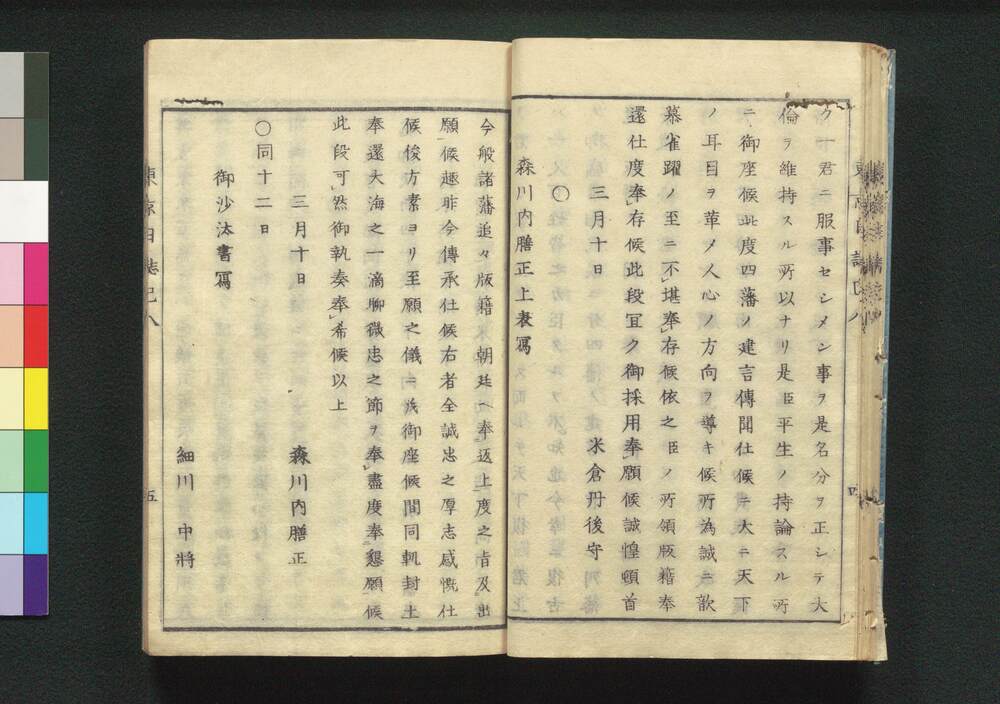 ク一君ニ服事セシメン事ヲ是名分ヲ正シテ大
倫ヲ維持スル所以ナリ是臣平生ノ持論スル所
ニ御座候此度四藩ノ建言傳聞仕候ニ大ニ天下
ノ耳目ヲ革メ人心ノ方向ヲ導キ候所為誠ニ歆
慕雀躍ノ至ニ不堪奉存候依之臣ノ所領版籍奉
還仕度奉存候此段宜ク御採用奉願候誠惶頓首
三月十日 米倉丹後守
〇
森川内膳正上表寫
今般諸藩追々版籍 朝廷ヘ奉返上度之旨及出
願候趣昨今傳承仕候右者全誠忠之厚志感慨仕
候俊方素ヨリ至願之儀ニ族御座候間同軌封土
奉還大海之一滴聊微忠之節ヲ奉盡度奉懇願候
此段可然御執奏奉希候以上
三月十日 森川内膳正
〇同十二日
御沙汰書寫
細川 中將
東京日誌己八
五